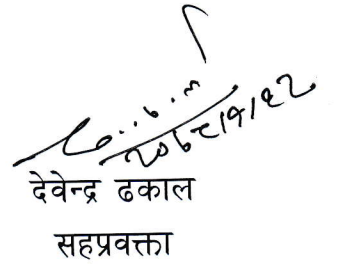 २०७८।७।१२
देवेन्द्र ढकाल
सहप्रवक्ता